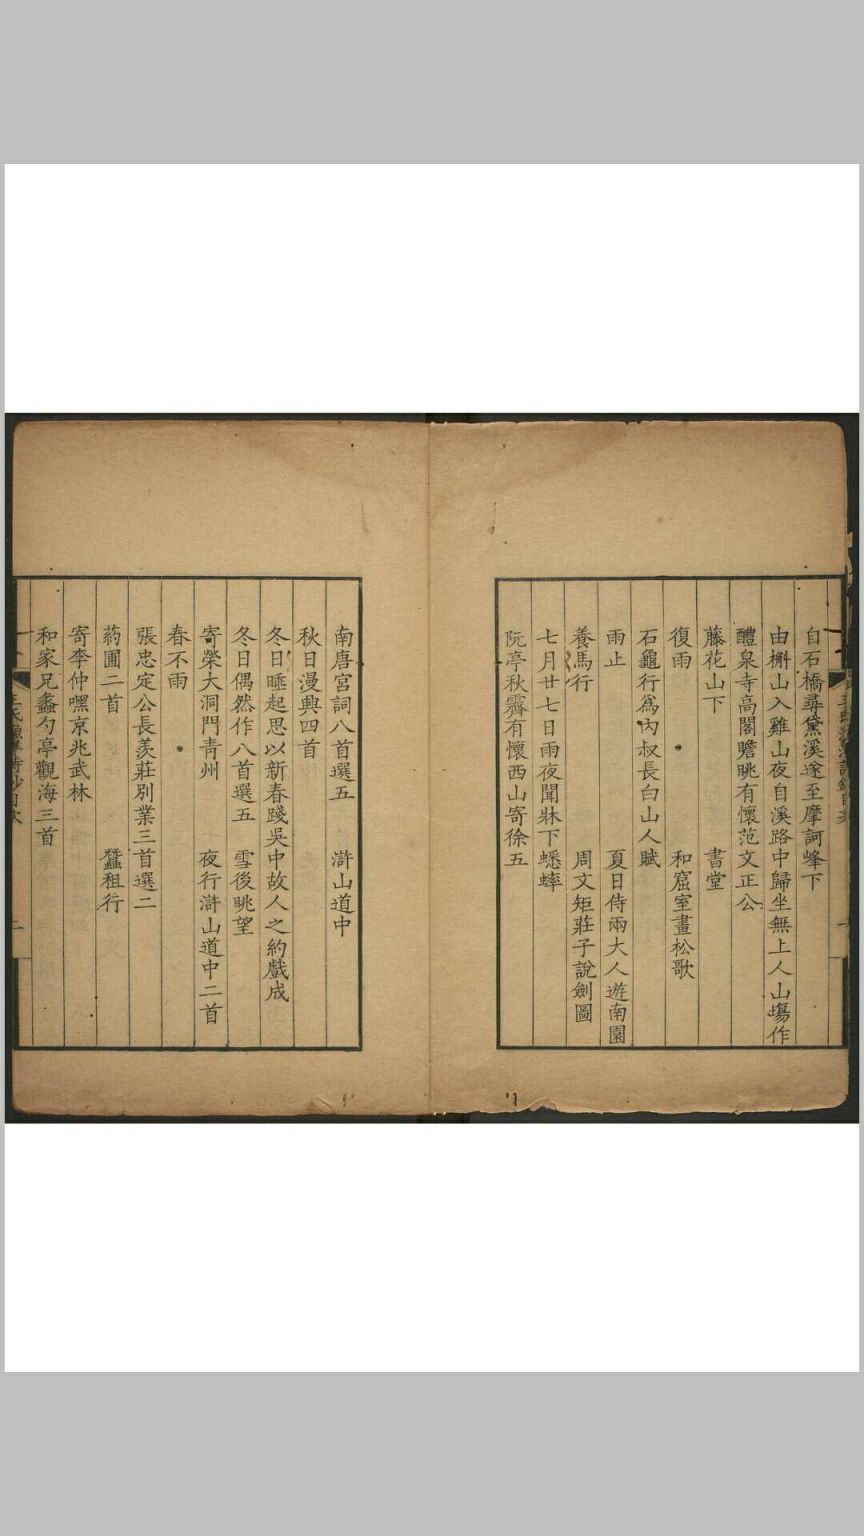 自石橋尋黛溪遂至摩訶峰下
由槲山入雞山夜自溪路中歸坐無上人山塲作
醴泉寺高閣瞻眺有懷范文正公
藤花山下　書堂
復雨　和窟室畫松歌
石龜行爲內叔長白山人賦
雨止　夏日侍兩大人遊南園
養馬行　周文矩莊子說劍圖
七月廿七日雨夜聞牀下蟋蟀
阮亭秋霽有懷西山寄徐五
南唐宮詞八首選五　滸山道中
秋日漫興四首
冬日睡起思以新春踐吳中故人之約戲成
冬日偶然作八首選五　雪後眺望
寄榮大洞門青州　夜行滸山道中二首
春不雨
張忠定公長羨莊別業三首選二
葯圃二首　蠶租行
寄李仲嘿京兆武林
和家兄蠡勺亭觀海三首